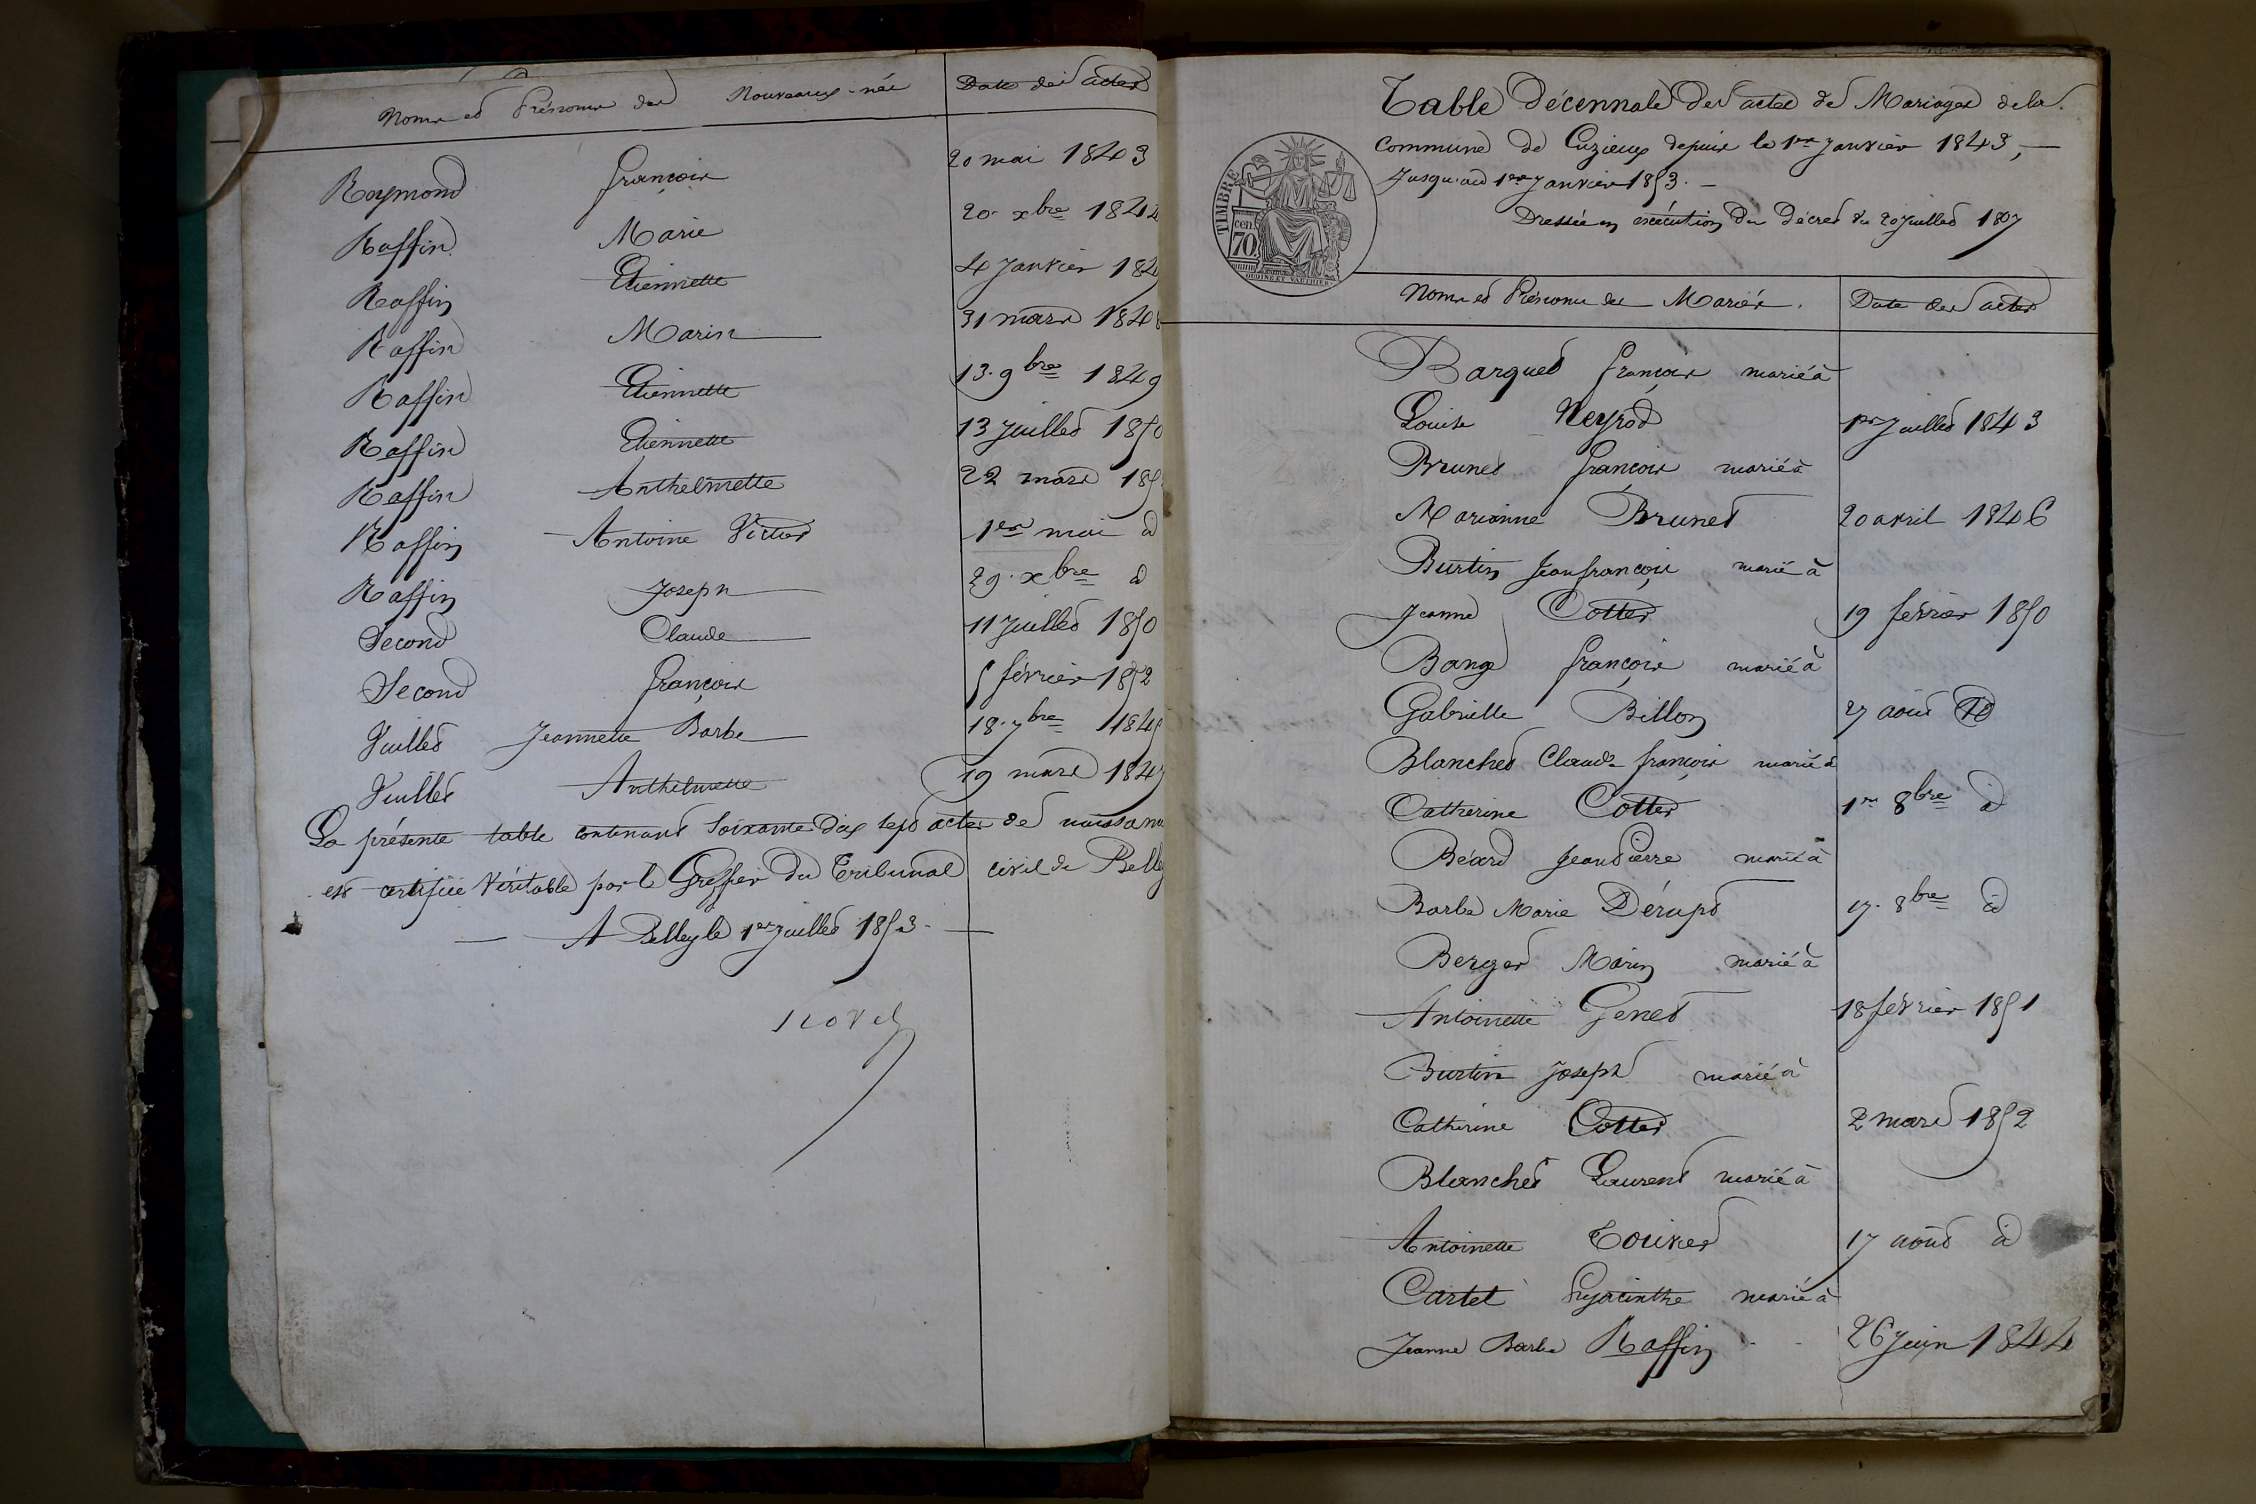 Noms et Prénoms des Nouveaux-nés
Date des actes
Raymond François 20 mai 1843
Raffin Marie 20 xbre 1844
Raffin Etiennette 4 Janvier 184
Raffin Marin 31 mars 184
Raffin Etiennette 13. 9bre 1849
Raffin Etiennette 13 Juillet 1850
Raffin Anthelmette 22 mars 185
Raffin Antoine Victor 1er mai d
Raffin Joseph 29. xbre d
Second Claude 11 Juillet 1850
Second François 5 février 1852
Vuillet Jeannette Barbe 18. 7bre 1845
Vuillet Anthelmette 19 mars 184
La présente table contenant Soixante Dix sept actes de naissance
est certifiée Véritable par le Greffier du Tribunal civil de Belley
A Belley le 1er Juillet 1853.
Table Décennale des actes de Mariages de la
commune de Cuzieux depuis le 1er Janvier 1843,
Jusqu'au 1er Janvier 1853.
Dressée en exécution du Décret du 20 Juillet 1807
TIMBRE
cen. 70.
Noms et Prénoms des Mariés.
Date des actes
Barquet François marié à
Louise Neyrod 1er Juillet 1843
Brunet François marié à
Marianne Brunet 20 avril 1846
Burtin Jean françois marié à
Jeanne Cotter 19 février 1850
Bange François marié à
Gabrielle Billon 27 août d
Blanchet Claude françois marié à
Catherine Cotter 1er 8bre d
Béard Jean Pierre marié à
Barbe Marie Dérupt 17. 8bre d
Berger Marin marié à
Antoinette Genet 18 février 1851
Burtin Joseph marié à
Catherine Cotter 2 mars 1852
Blanchet Laurent marié à
Antoinette Touvier 17 août d
Cartet hyacinthe marié à
Jeanne Barbe Raffin 26 Juin 1844